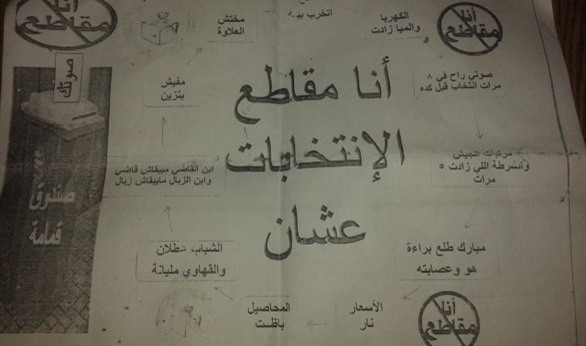 أنا
مقاطع
صوتك
صندوق
قمامة
مخدتش
العلاوة
اتخرب
الكهربا
والميا زادت
أنا
مقاطع
صوتي راح في ٨
مرات انتخاب قبل كده
مرتبات الجيش
والشرطة اللي زادت ٥
مرات
مبارك طلع براءة
هو وعصابته
أنا
مقاطع
الأسعار
نار
المحاصيل
باظت
الشباب عطلان
والقهاوي مليانة
ابن القاضي مبيقاش قاضي
وابن الزبال مابيقاش زبال
مفيش
بنزين
أنا مقاطع
الإنتخابات
عشان